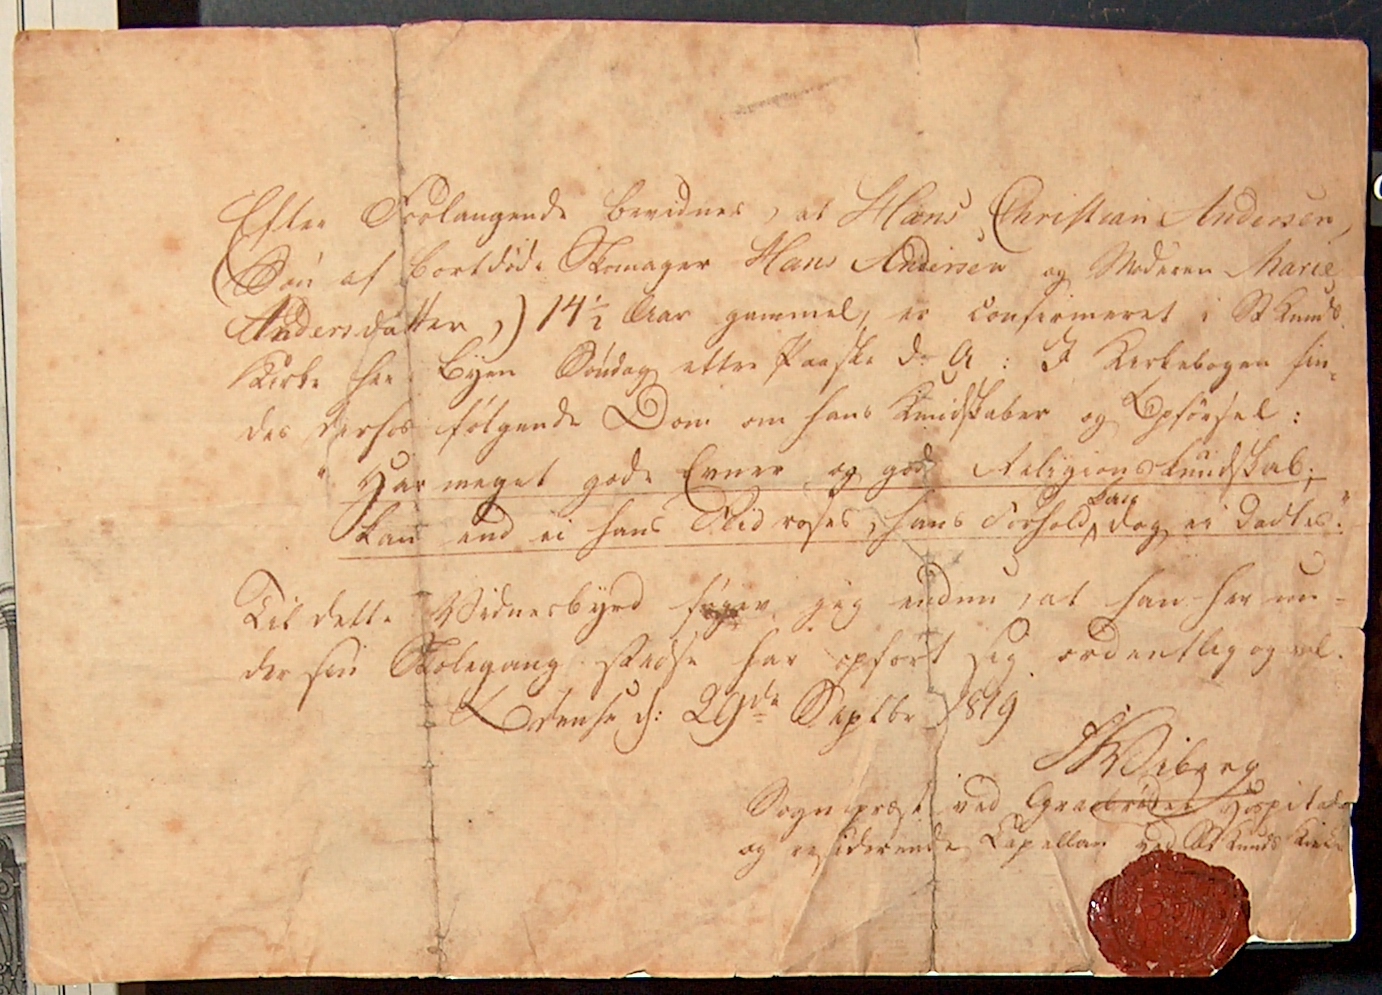 Efter Forlangende bevidnes, at Hans Christian Andersen,
(Søn af bortdøde Skomager Hans Andersen og Moderen Marie
Andersdatter,) 14 1/2 Aar gammel, er confirmeret i St Knuds
Kirke her i Byen Søndag efter Paaske d. A: I Kirkebogen fin-
des derhos følgende Dom om hans Kundskaber og Opførsel:
"Har meget gode Evner og god Religionskundskab;
kan end ei hans Flid roses, hans Forhold kan dog ei dadles."
Til dette Vidnesbyrd føier jeg endnu, at han her un-
der sin Skolegang stedse har opført sig ordentlig og vel.
Odense d: 29de Septbr 1819
Wiberg
Sognepræst ved Graabrødre Hospital
og residerende Capellan ved St Knuds Kirke